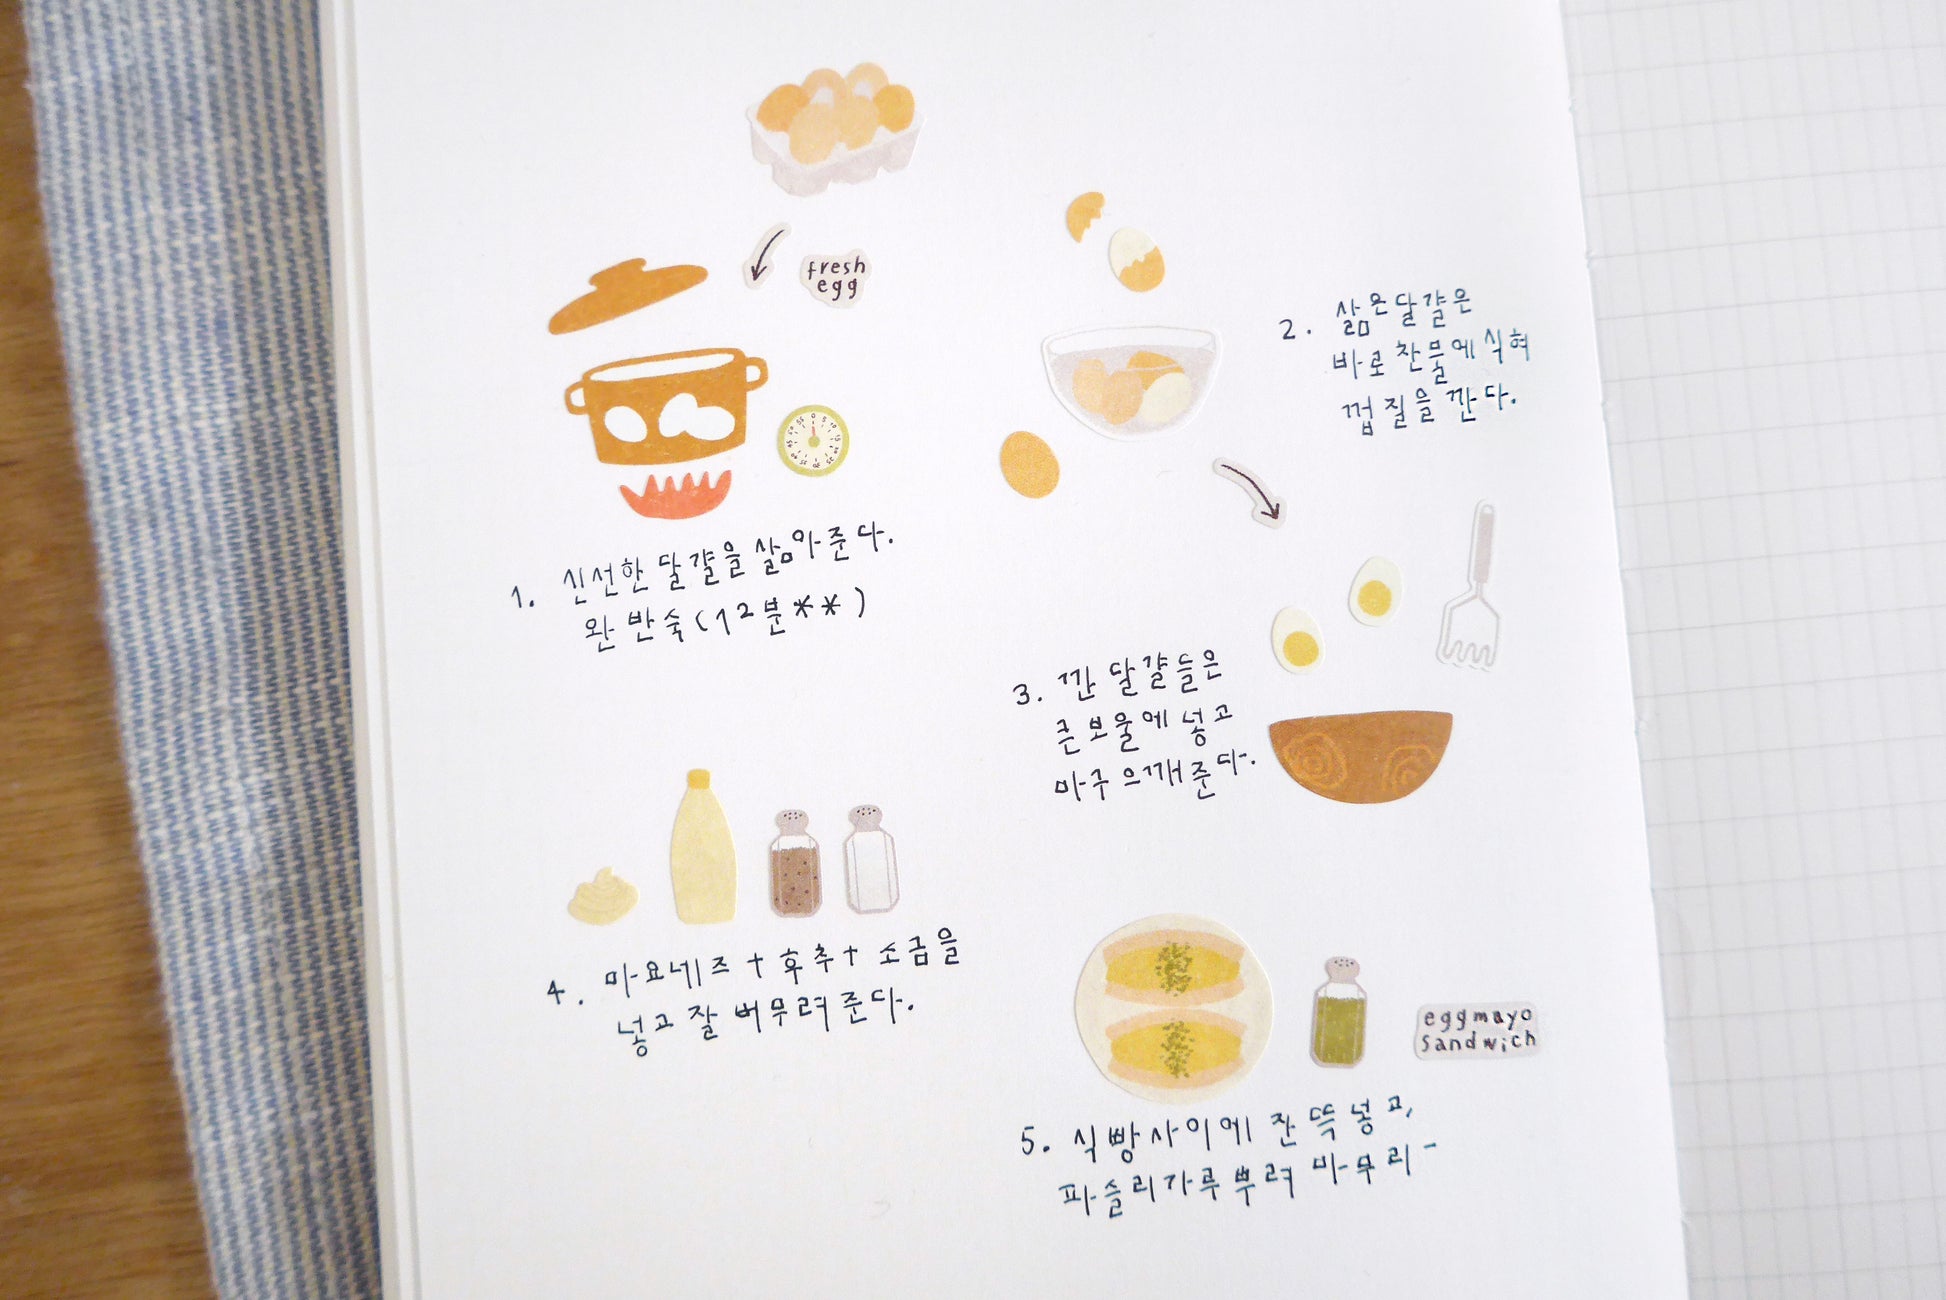 fresh
egg
1. 신선한 달걀을 삶아준다.
완 반숙(12분**)
2. 삶은달걀은
바로 찬물에 식혀
껍질을 깐다.
3. 깐 달걀들은
큰 보울에 넣고
마구 으깨준다.
4. 마요네즈 + 후추 + 소금을
넣고 잘 버무려준다.
eggmayo
sandwich
5. 식빵사이에 잔뜩 넣고,
파슬리가루뿌려 마무리-